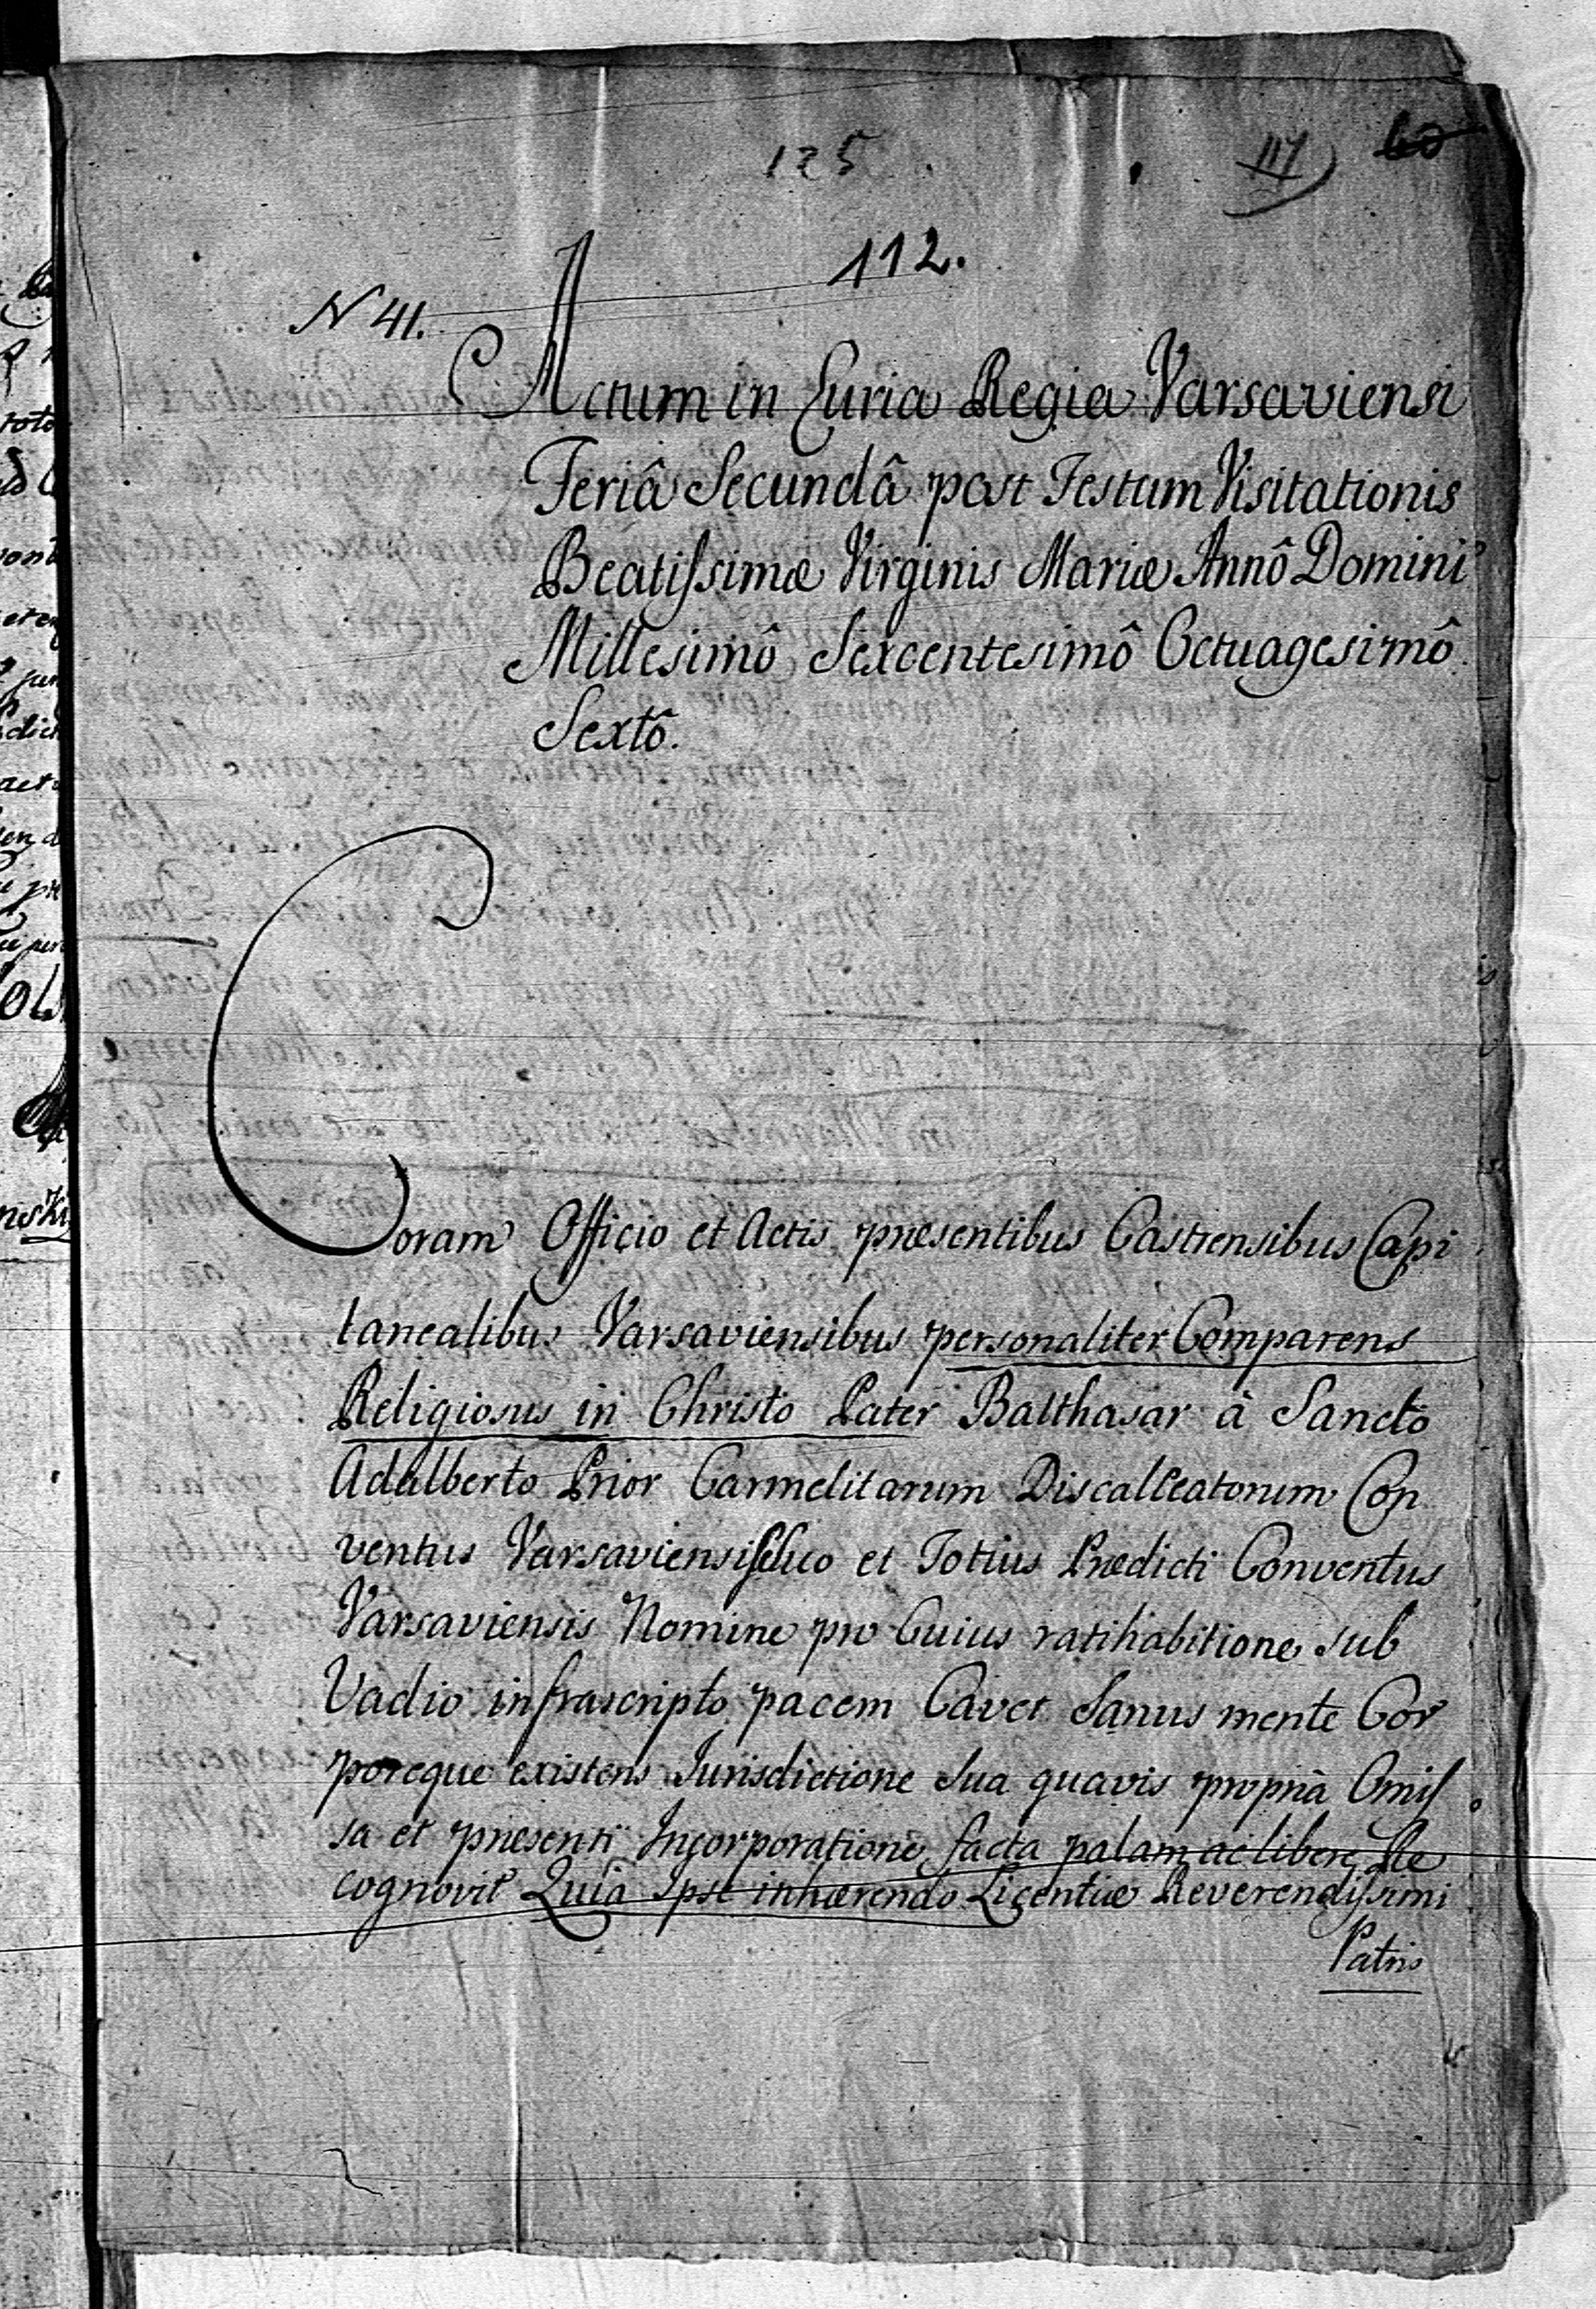 125
117
60
112.
N 41.
Actum in Curia Regia Varsaviensi
Feriâ Secundâ post Festum Visitationis
Beatissimæ Virginis Mariæ Annô Domini
Millesimô Sexcentesimô Octuagesimô
Sextô.
Coram Officio et Actis præsentibus Castrensibus Capi
taneali­bus Varsaviensibus personaliter Comparens
Religiosus in Christo Pater Balthasar à Sancto
Adalberto Prior Carmelitarum Discalceatorum Con
ventus Varsaviensis Suo et Totius Prædicti Conventus
Varsaviensis Nomine pro Cuius ratihabitione sub
Vadio infrascripto pacem Cavet Sanus mente Cor
poreque existens Jurisdictione Sua quavis propria Omis
sa et præsenti Incorporatione facta palam ac libere Re
cognovit Quia Ipse inhærendo Licentiæ Reverendissimi
Patris